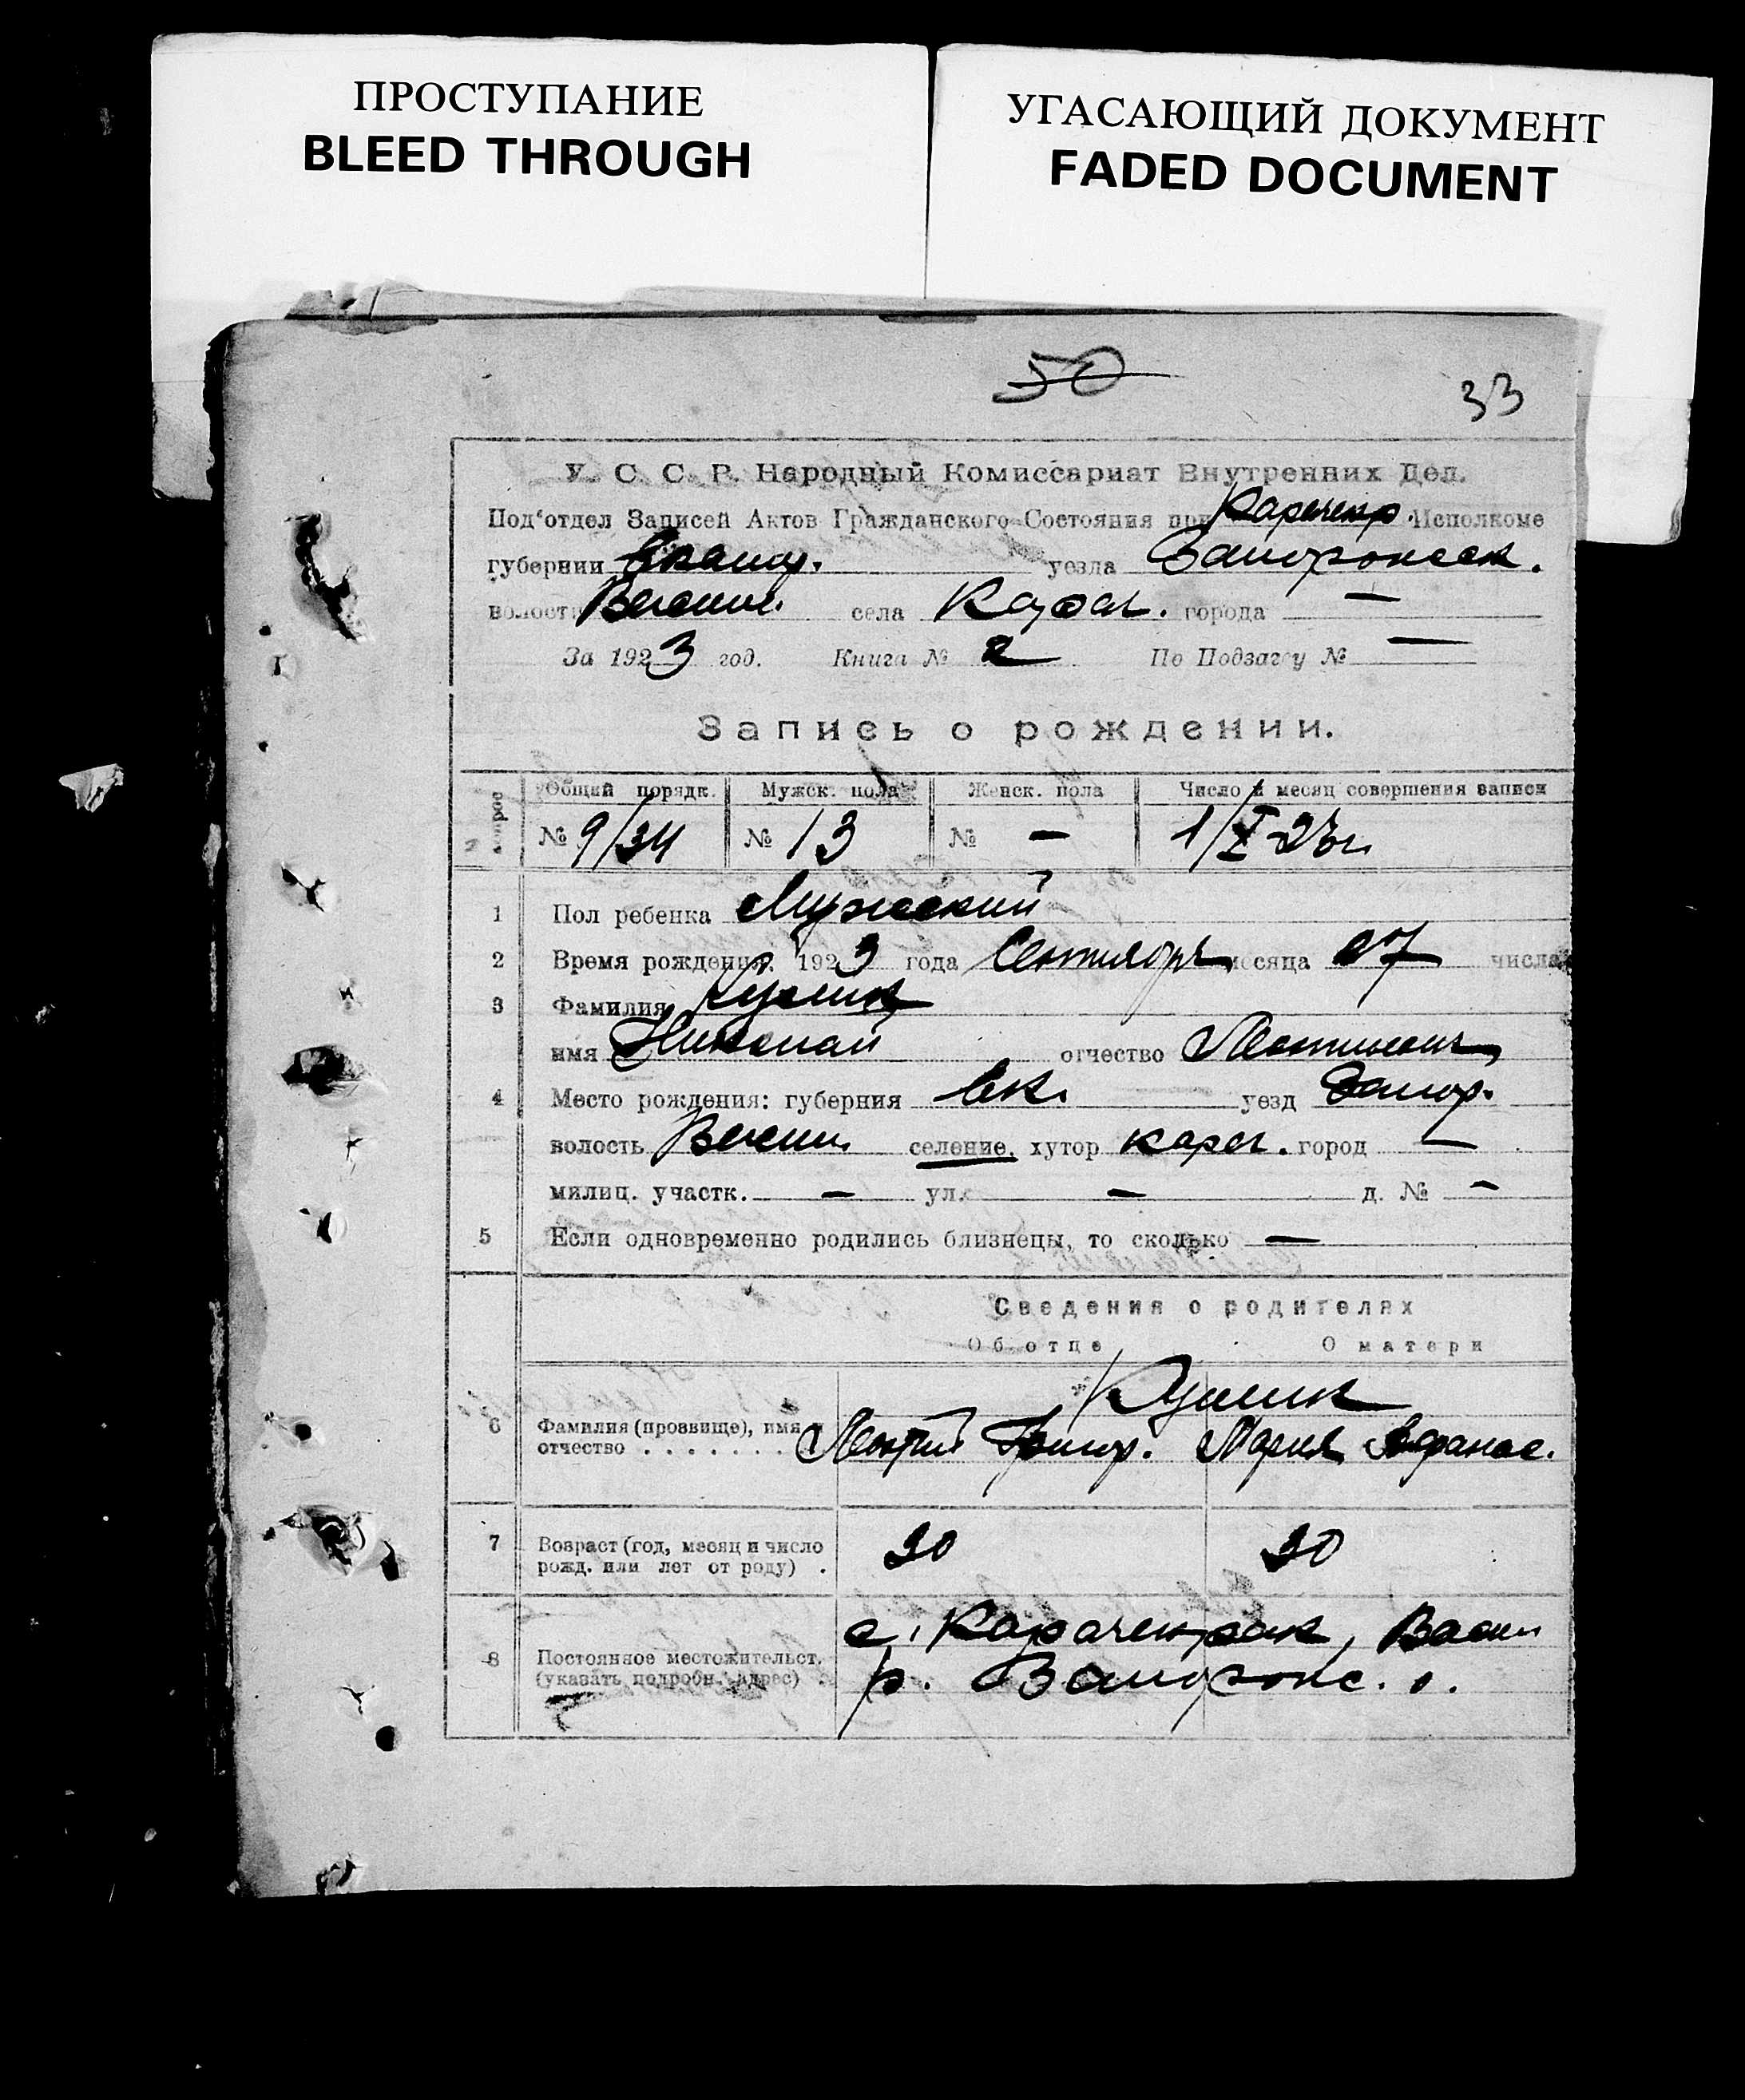 ПРОСТУПАНИЕ
BLEED THROUGH
УГАСАЮЩИЙ ДОКУМЕНТ
FADED DOCUMENT
50
33
У. С. С. Р. Народный Комиссариат Внутренних Дел.
Под'отдел Записей Актов Гражданского Состояния при Карачекр. Исполкоме
губернии Екат. уезда Запорожск.
волости села Карач. города —
За 1923 год. Книга № 2 По Подзагсу № —
Запись о рождении.
Общий порядк. Мужск. пола Женск. пола Число и месяц совершения записи
№ 9/34 № 13 № — 1/X 23г.
1 Пол ребенка Мужеский
2 Время рождения: 1923 года Сентябрь месяца 27 числа
3 Фамилия Кулик
имя Николай отчество
4 Место рождения: губерния Ек. уезд Запор.
волость селение, хутор Карач. город —
милиц. участк. — ул. — д. № —
5 Если одновременно родились близнецы, то сколько —
Сведения о родителях
Об отце О матери
Кулик
6 Фамилия (прозвище), имя и
отчество . . . . . . . Григор. Мария Афанас.
7 Возраст (год, месяц и число
рожд. или лет от роду) . 30 30
8 Постоянное местожительст.
(указать подробн. адрес) . с. Карачекрак, Васил
р. Запорожс. о.